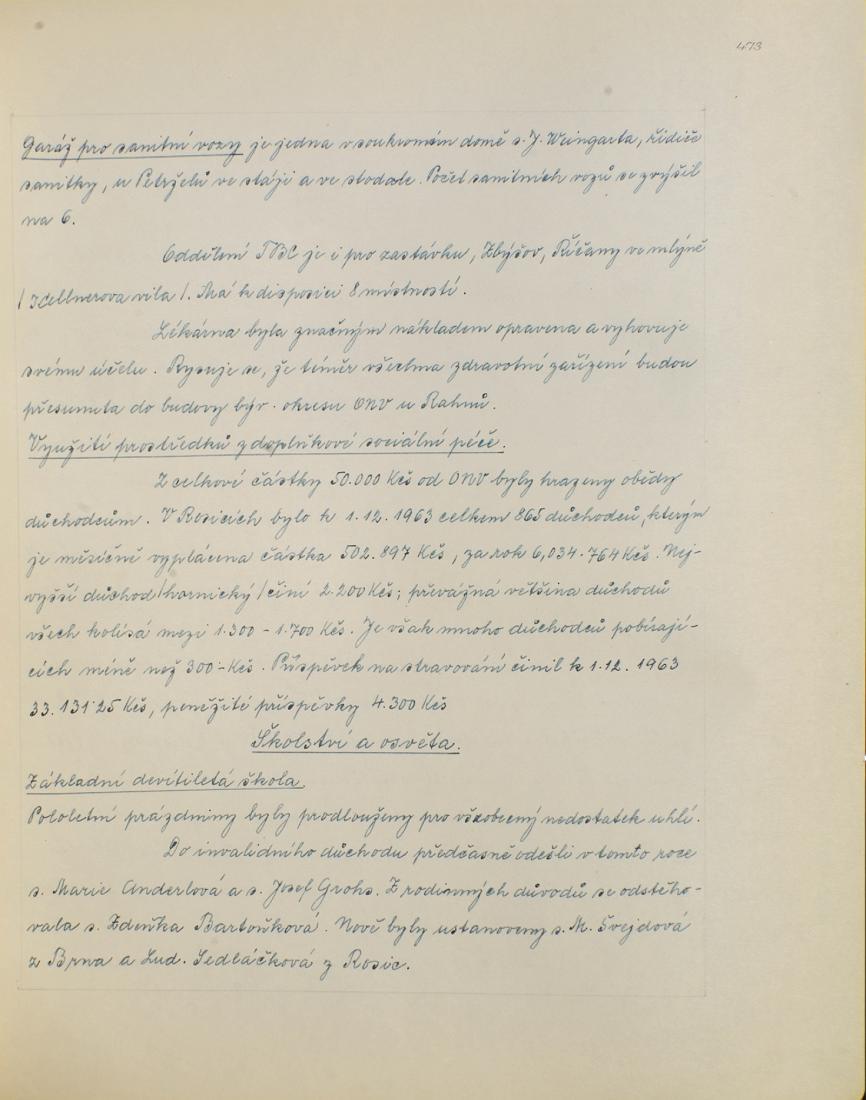 473
Garáž pro sanitní vozy je jedna v soukromém domě s. J. Weingarta, řidiče
sanitky, u Petrželů ve stáji a ve stodole. Počet sanitních vozů se zvýšil
na 6.
Oddělení TBC je i pro zastávku, Zbýšov, Říčany ve mlýně
/ Kellnerova vila /. Má k disposici 8 místností.
Lékárna byla značným nákladem opravena a vyhovuje
svému účelu. Rysuje se, že téměř všechna zdravotní zařízení budou
přesunuta do budovy býv. okresu ONV u Rahnů.
Využití prostředků z doplňkové sociální péče.
Z celkové částky 50.000 Kčs od ONV byly hrazeny obědy
důchodcům. V Rosicích bylo k 1.12.1963 celkem 865 důchodců, kterým
je měsíčně vyplácena částka 502.897 Kčs, za rok 6,034.764 Kčs. Nej-
vyšší důchod /hornický/ činí 2.200 Kčs; převážná většina důchodů
všech kolísá mezi 1.300 - 1.700 Kčs. Je však mnoho důchodců pobírají-
cích méně než 300·- Kčs. Příspěvek na stravování činil k 1.12. 1963
33.131·25 Kčs, peněžité příspěvky 4.300 Kčs
Školství a osvěta.
Základní devítiletá škola.
Pololetní prázdniny byly prodlouženy pro všeobecný nedostatek uhlí.
Do invalidního důchodu předčasně odešli v tomto roce
s. Marie Anderlová a s. Josef Grohs. Z rodinných důvodů se odstěho-
vala s. Zdeňka Bartoňková. Nově byly ustanoveny s. M. Švejdová
z Brna a Lud. Sedláčková z Rosic.